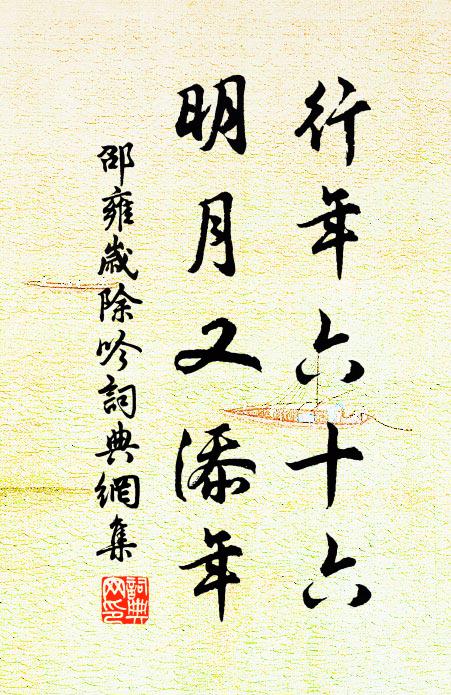 行年六十六
明月又添年
邵雍歲除吟詞典網集
詞典
网印